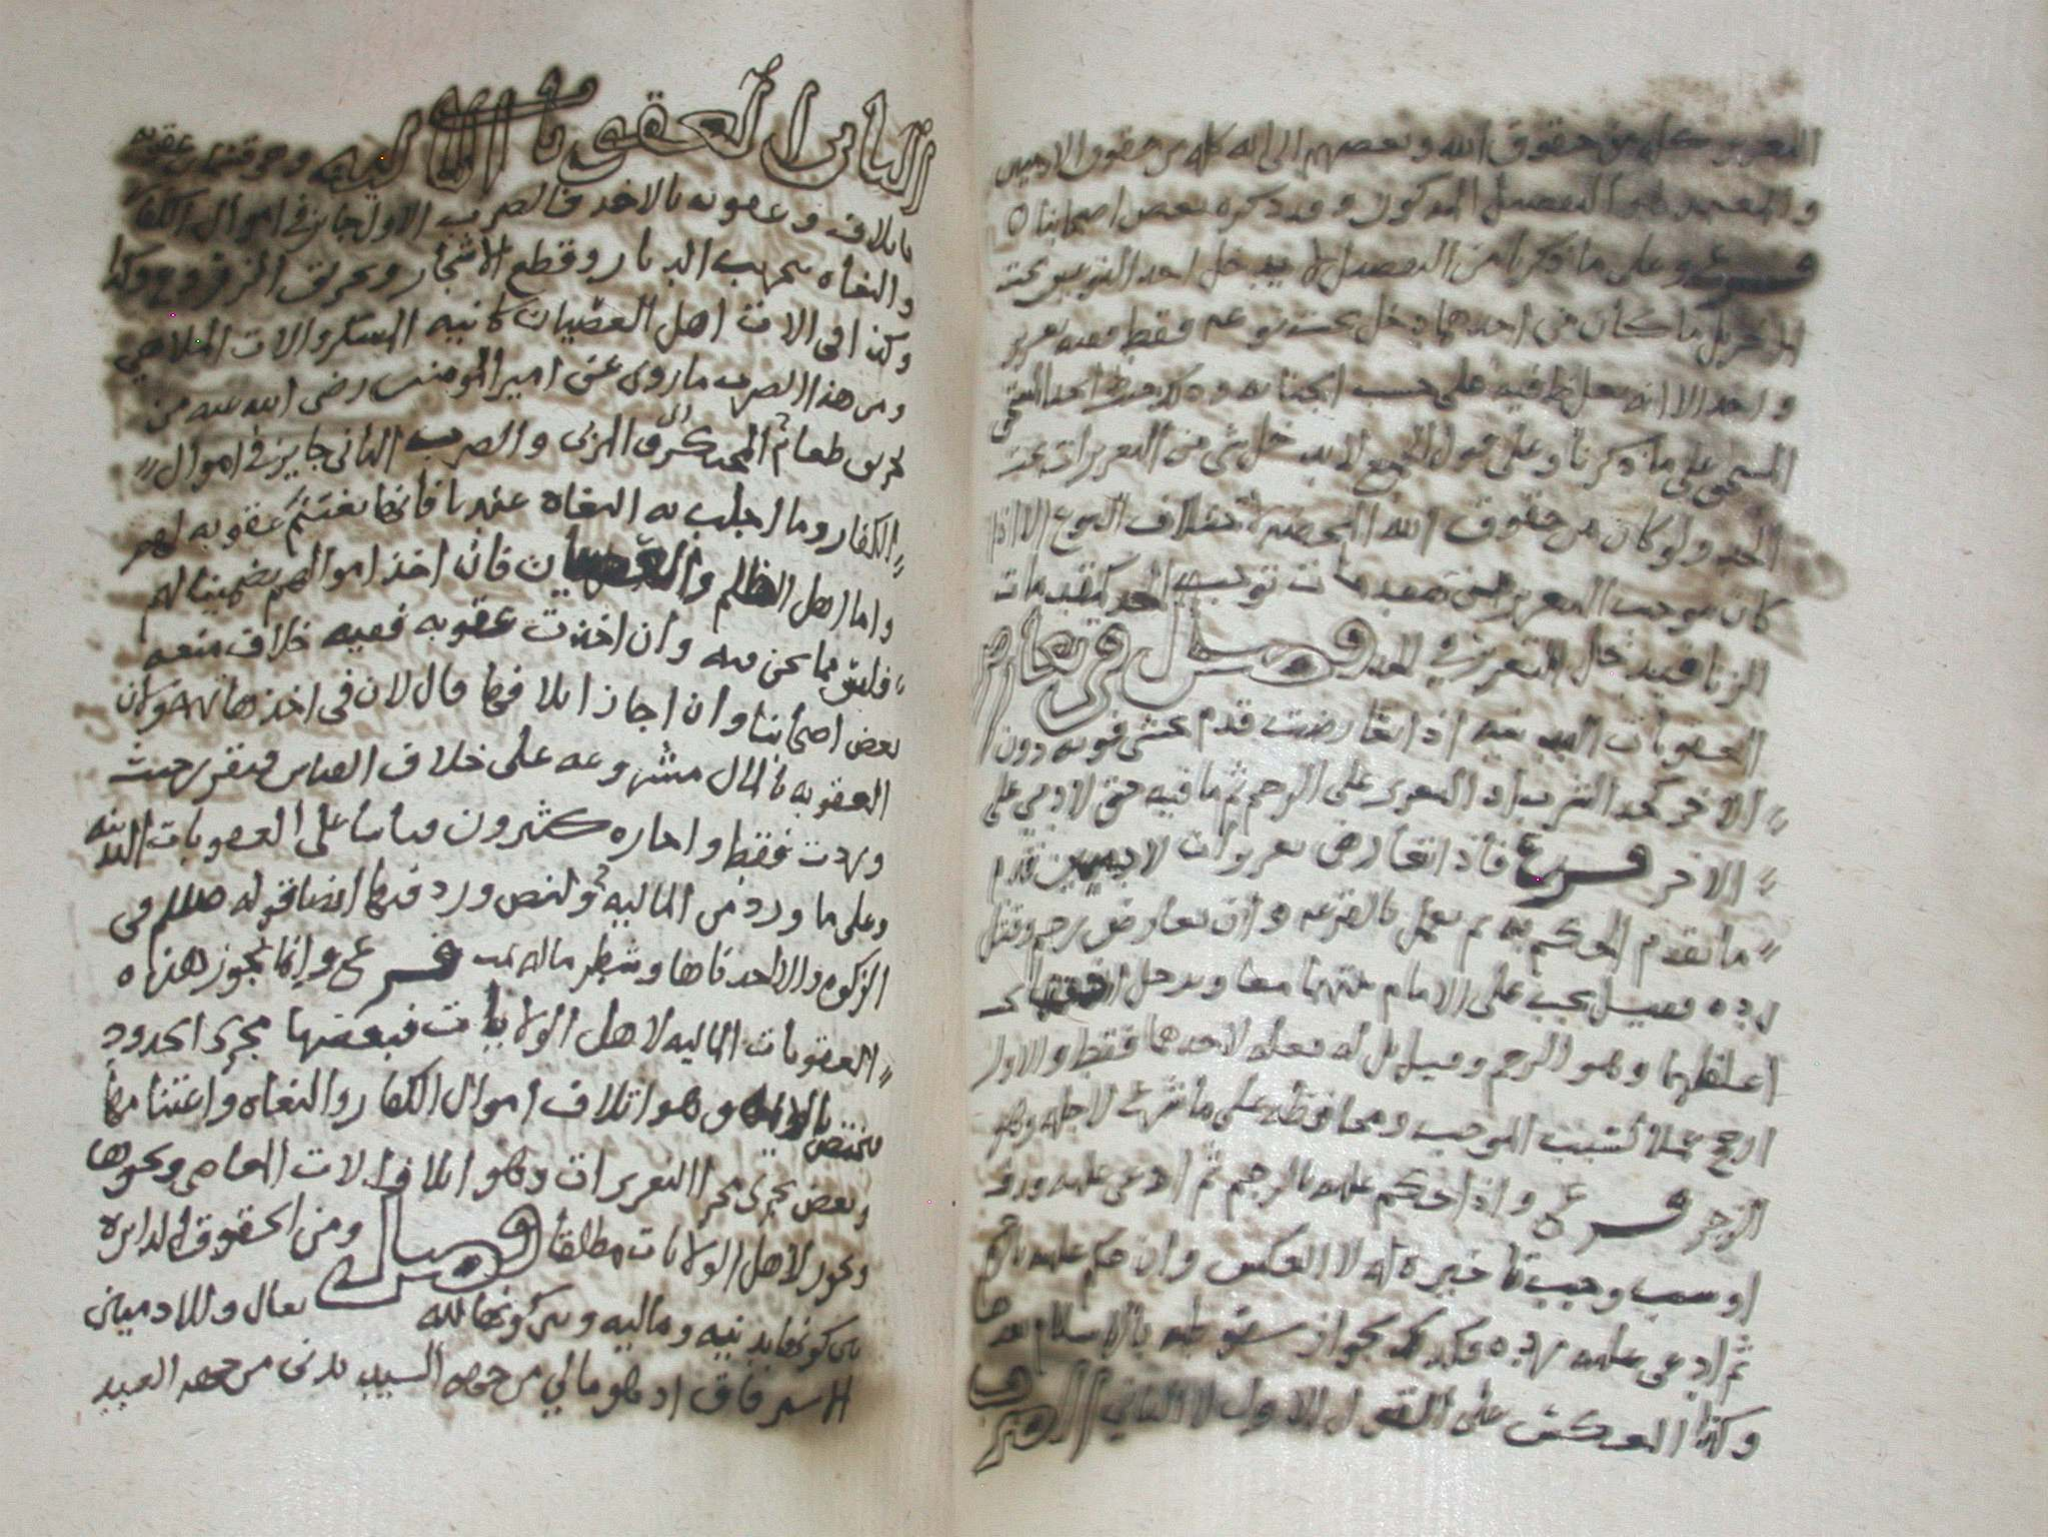 التعزير كله من حقوق الله وبعضهم الى انه كله من حقوق الادميين
والمعتمد هو التفصيل المذكور وقد ذكره بعض اصحابنا ٥
فرع وعلى ما ذكرنا من التفصيل لا يدخل احد النوعين تحت
الاخر بل ما كان من احدهما دخل تحت نوعه فقط ففيه تعزير
واحد الا انه يغلظ فيه على حسب الجنايه
على ما ذكرنا وعلى قول الجميع لا يدخل شي من التعزيرات تحت
الحد ولو كان من حقوق الله المحضه لاختلاف النوع الا اذا
كان موجب التعزير من مقدمات توجب الحد كمقدمات
الزنا فيدخل التعزير في الحد فصل في تعارض
العقوبات البدنيه اذا تعارضت قدم مخشي فوته دون
الاخر كحد الشرب او التعزير على الرجم ثم ما فيه حق لادمي على
الاخر فرع فاذا تعارض تعزيرات لادميين قدم
ما تقدم الحكم به ثم يعمل بالقرعه وان تعارض رجم وقتل
رده فقيل يجب على الامام نيتهما معا ويدخل
اغلظهما وهو الرجم وقيل بل له فعله لاحدهما فقط والاول
ارجح عملا بسبب الموجب ومحافظه على ما شرعت لاجله وهو
الزجر فرع واذا حكم عليه بالرجم ثم ادعى عليه
وجب تاخيره له لا العكس وان حكم عليه بالرجم
ثم ادعي عليه برده فكذلك لجواز سقوطه بالاسلام
وكذا العكس على القول الاول لا الثاني الضرب
الثاني العقوبات الماليه وهو قسمان عقوبه
باتلاف وعقوبه بالاخذ فالضرب الاول جايز في اموال الكفار
والبغاه كنهب الديار وقطع الاشجار وتحريق الزروع
وكذا في الات اهل العصيان كانيه المسكر والات الملاهي
ومن هذا الضرب ما روي عن امير المومنين رضي الله عنه من
تحريق طعام المحتكر والضرب الثاني جايز في اموال
الكفار وما اجلب به البغاه عندنا فانها تغتنم عقوبه لهم
واما اهل الظلم والعصيان فان اخذ اموالهم تضمينا لهم
فليس مما نحن فيه وان اخذت عقوبه ففيه خلاف منعه
بعض اصحابنا وان اجاز اتلافها قال لان في اخذها تهمه ولان
العقوبه بالمال مشروعه على خلاف القياس فتقر حيث
وردت فقط واجازه كثيرون قياسا على العقوبات البدنيه
وعلى ما ورد من الماليه ولنص ورد فيها ايضا قوله صلعم في
الزكوه والا اخذناها وشطر ماله فرع وانما تجوز هذه
العقوبات الماليه لاهل الولايات فبعضها مجرى الحدود
يختص بالائمه وهو اتلاف اموال الكفار والبغاه واغتنامها
وبعض يجري مجرا التعزيرات وهو اتلاف الات المعاصي ونحوها
ويجوز لاهل الولايات مطلقا فصل ومن الحقوق الدايره
بين كونها بدنيه وماليه وبين كونها لله تعالى وللادميين
الاسترقاق اذ هو مالي من جهه السيد بدني من جهه العبد